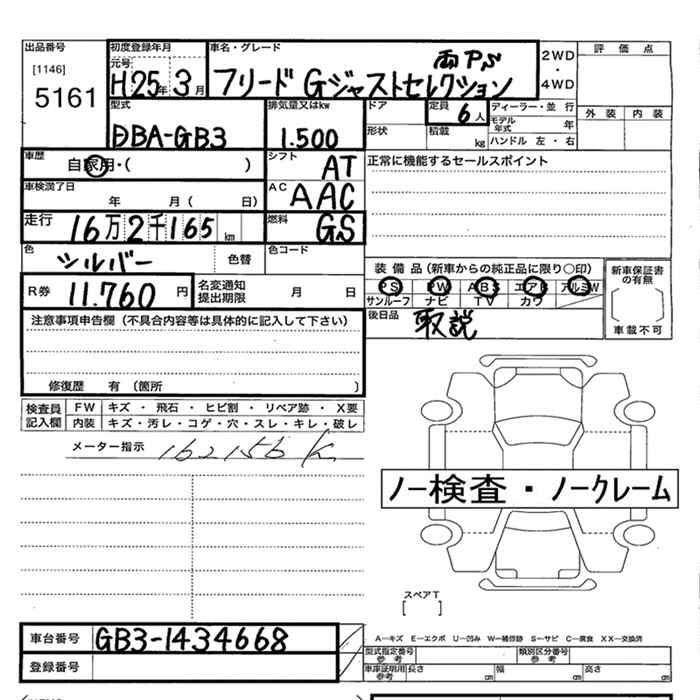 出品番号
[1146]
5161
初度登録年月
元号
H25年3月
車名・グレード
両PS
フリード Gジャストセレクション
2WD
・
4WD
評価点
外装 内装
型式
DBA-GB3
排気量又はkw
1.500
ドア
形状
定員
6人
積載
kg
ディーラー・並行
モデル年式 年
ハンドル 左・右
車歴
自家用・( )
シフト
AT
正常に機能するセールスポイント
車検満了日
年 月( 日)
AC
AAC
走行
16万2千165km
燃料
GS
色
シルバー
色替
色コード
装備品(新車からの純正品に限り○印)
PS PW ABS エアB アルミW
サンルーフ ナビ TV カワ
新車保証書の有無
[ ]
車載不可
R券
11.760円
名変通知
提出期限
月 日
後日品
取説
注意事項申告欄(不具合内容等は具体的に記入して下さい)
修復歴 有(箇所 )
検査員
記入欄
FW キズ・飛石・ヒビ割・リペア跡・X要
内装 キズ・汚レ・コゲ・穴・スレ・キレ・破レ
メーター指示
162156K
ノー検査・ノークレーム
スペアT
[ ]
車台番号
GB3-1434668
登録番号
A−キズ E−エクボ U−凹み W−補修跡 S−サビ C−腐食 XX−交換済
型式指定番号
参考
類別区分番号
参考
車庫証明用
参考
長さ cm
幅 cm
高さ cm